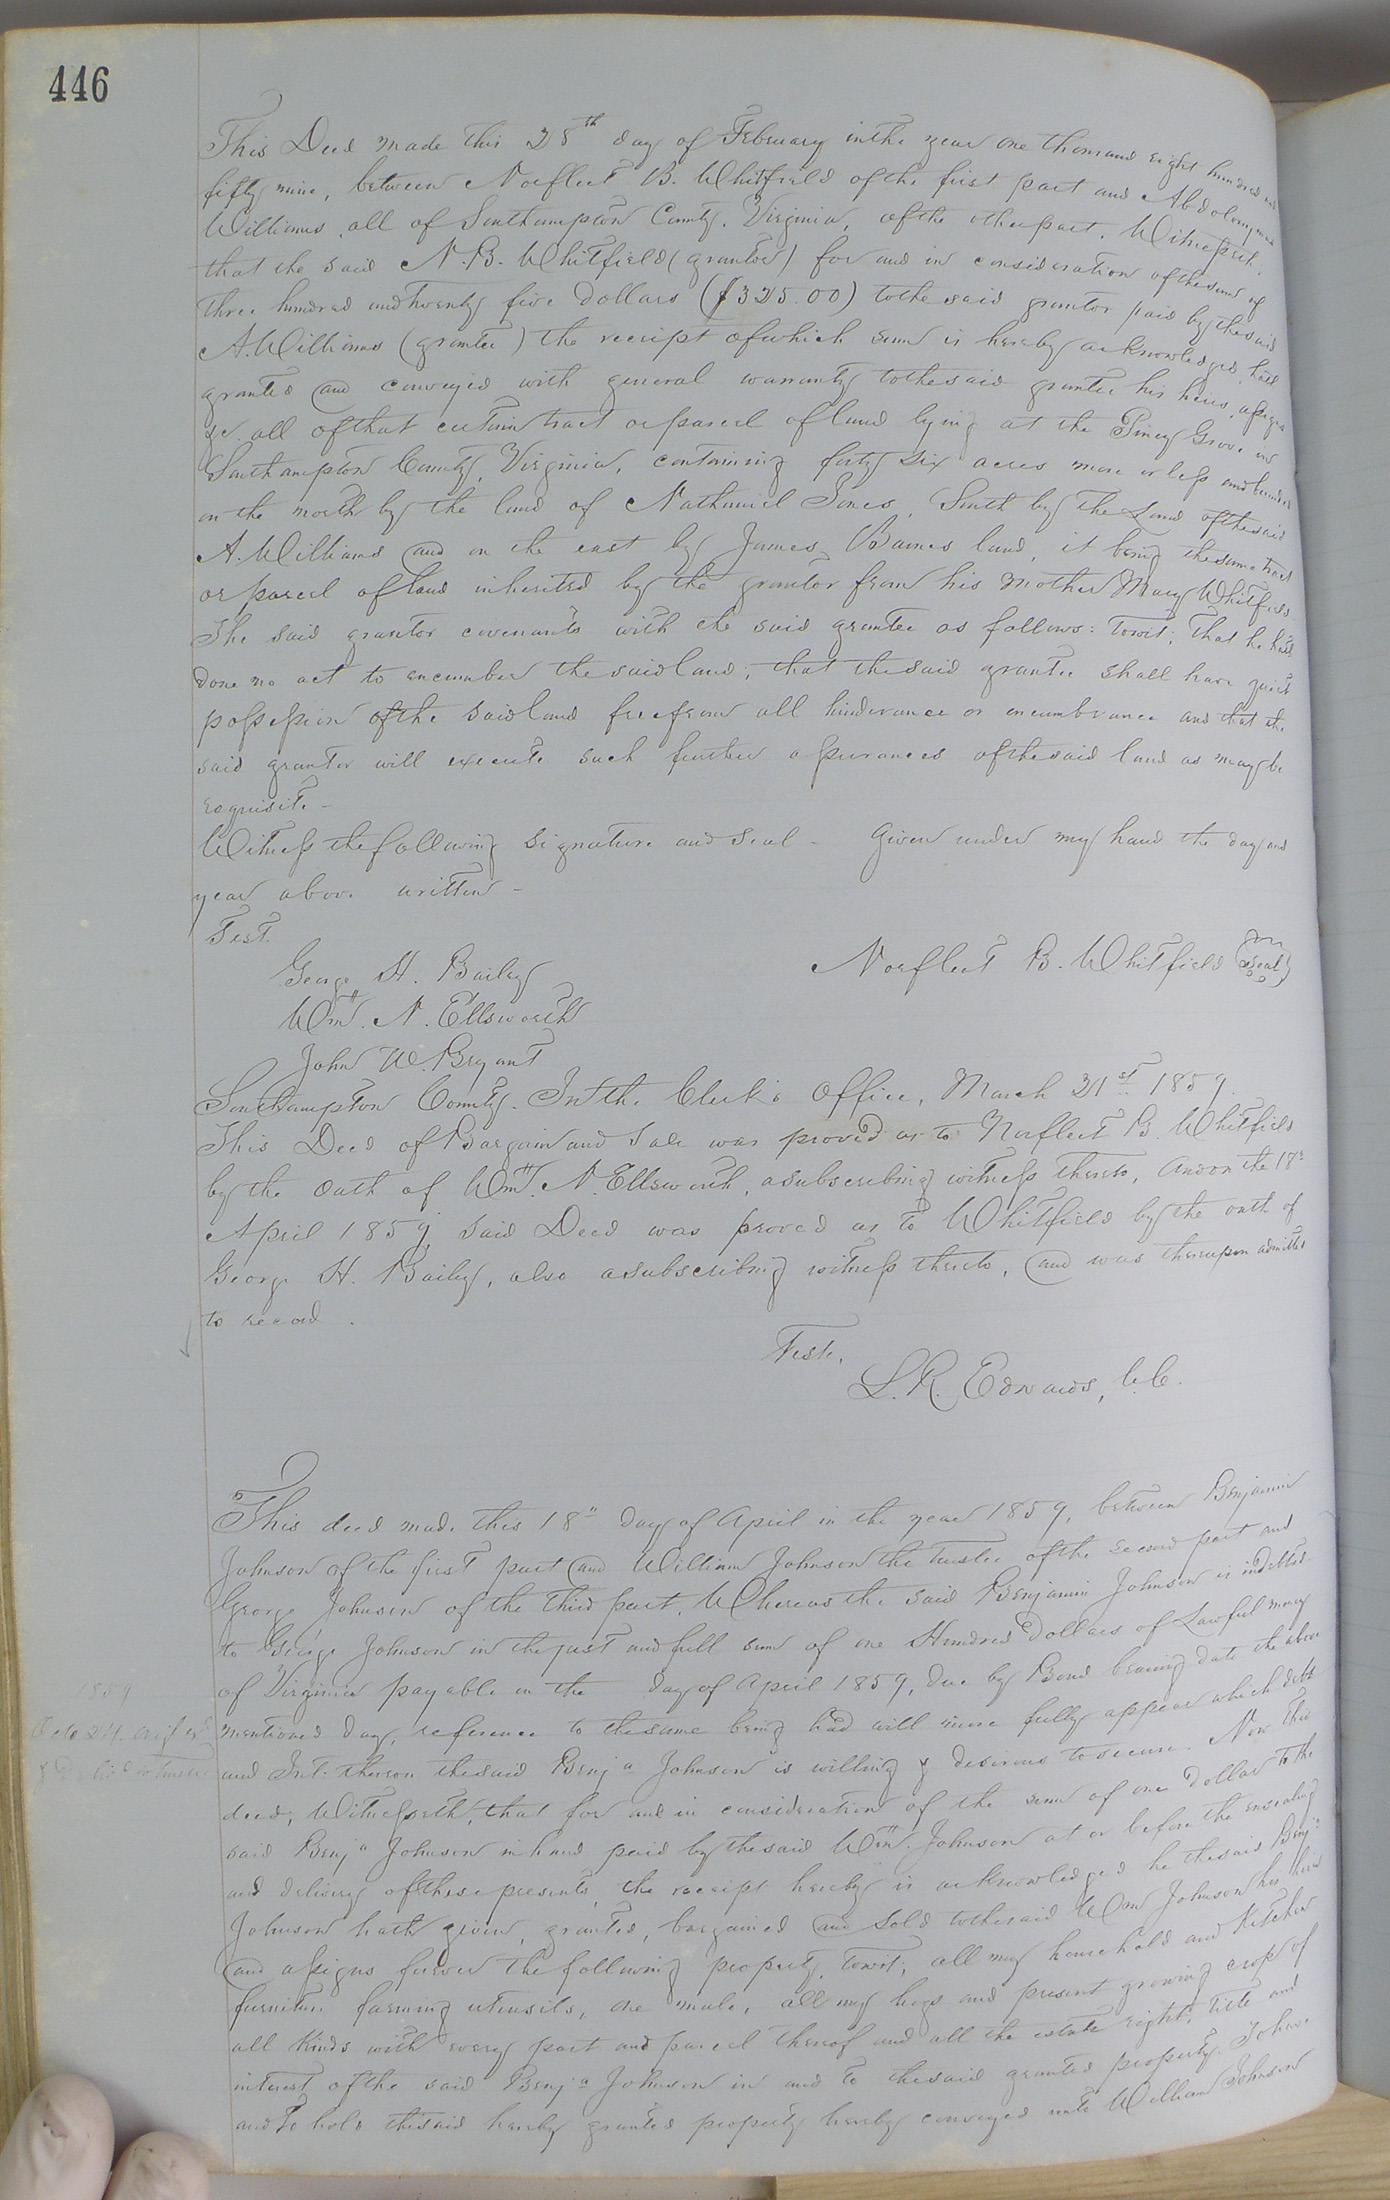 446
This Deed made this 28th day of February in the year one thousand eight hundred and
fifty nine, between Norfleet B. Whitfield of the first part and Abdolonymus
Williams, all of Southampton County, Virginia, of the other part. Witnesseth,
that the said N. B. Whitfield (grantor) for and in consideration of the sum of
three hundred and twenty five Dollars ($325.00) to the said grantor paid by the said
A. Williams (grantee) the receipt of which sum is hereby acknowledged, hath
granted and conveyed with general warranty to the said grantee his heirs, assigns
&c. all of that certain tract or parcel of land lying at the Piney Grove in
Southampton County, Virginia, containing forty six acres more or less and bounded
on the north by the land of Nathaniel Jones, South by the Land of the said
A. Williams and on the east by James Barnes land, it being the same tract
or parcel of land inherited by the grantor from his mother Mary Whitfield.
The said grantor covenants with the said grantee as follows: towit; That he hath
done no act to encumber the said land; that the said grantee shall have quiet
possession of the said land free from all hinderance or encumbrance and that the
said grantor will execute such further assurances of the said land as may be
requisite -
Witness the following signature and seal - Given under my hand the day and
year above written -
Test.
George H. Bailey
Norfleet B. Whitfield (Seal)
Wm. N. Ellsworth
John W. Bryant
Southampton County. In the Clerk's Office, March 21st 1859.
This Deed of Bargain and Sale was proved as to Norfleet B. Whitfield
by the oath of Wm. N. Ellsworth, a subscribing witness thereto, and on the 18"
April 1859, said Deed was proved as to Whitfield by the oath of
George H. Bailey, also a subscribing witness thereto, and was thereupon admitted
to record.
Teste,
L. R. Edwards, C.C.
This deed made this 18" day of April in the year 1859, between Benjamin
Johnson of the first part and William Johnson the trustee of the second part and
George Johnson of the third part, Whereas the said Benjamin Johnson is indebted
to George Johnson in the just and full sum of one Hundred Dollars of Lawful money
of Virginia payable on the day of April 1859, due by Bond bearing date the above
mentioned day, reference to the same being had will more fully appear which debt
and Int. thereon the said Benja Johnson is willing & desirous to secure. Now this
deed; Witnesseth, that for and in consideration of the sum of one dollar to the
said Benja Johnson in hand paid by the said Wm. Johnson at or before the ensealing
and delivery of these presents, the receipt hereby is acknowledged he the said Benja
Johnson hath given, granted, bargained and sold to the said Wm Johnson his heirs
and assigns forever the following property, towit; all my household and Kitchen
furniture farming utensils, one mule, all my hogs and present growing crop of
all kinds with every part and parcel thereof and all the estate right, title and
interest of the said Benja Johnson in and to the said granted property. To have
and to hold the said hereby granted property hereby conveyed unto William Johnson
1859